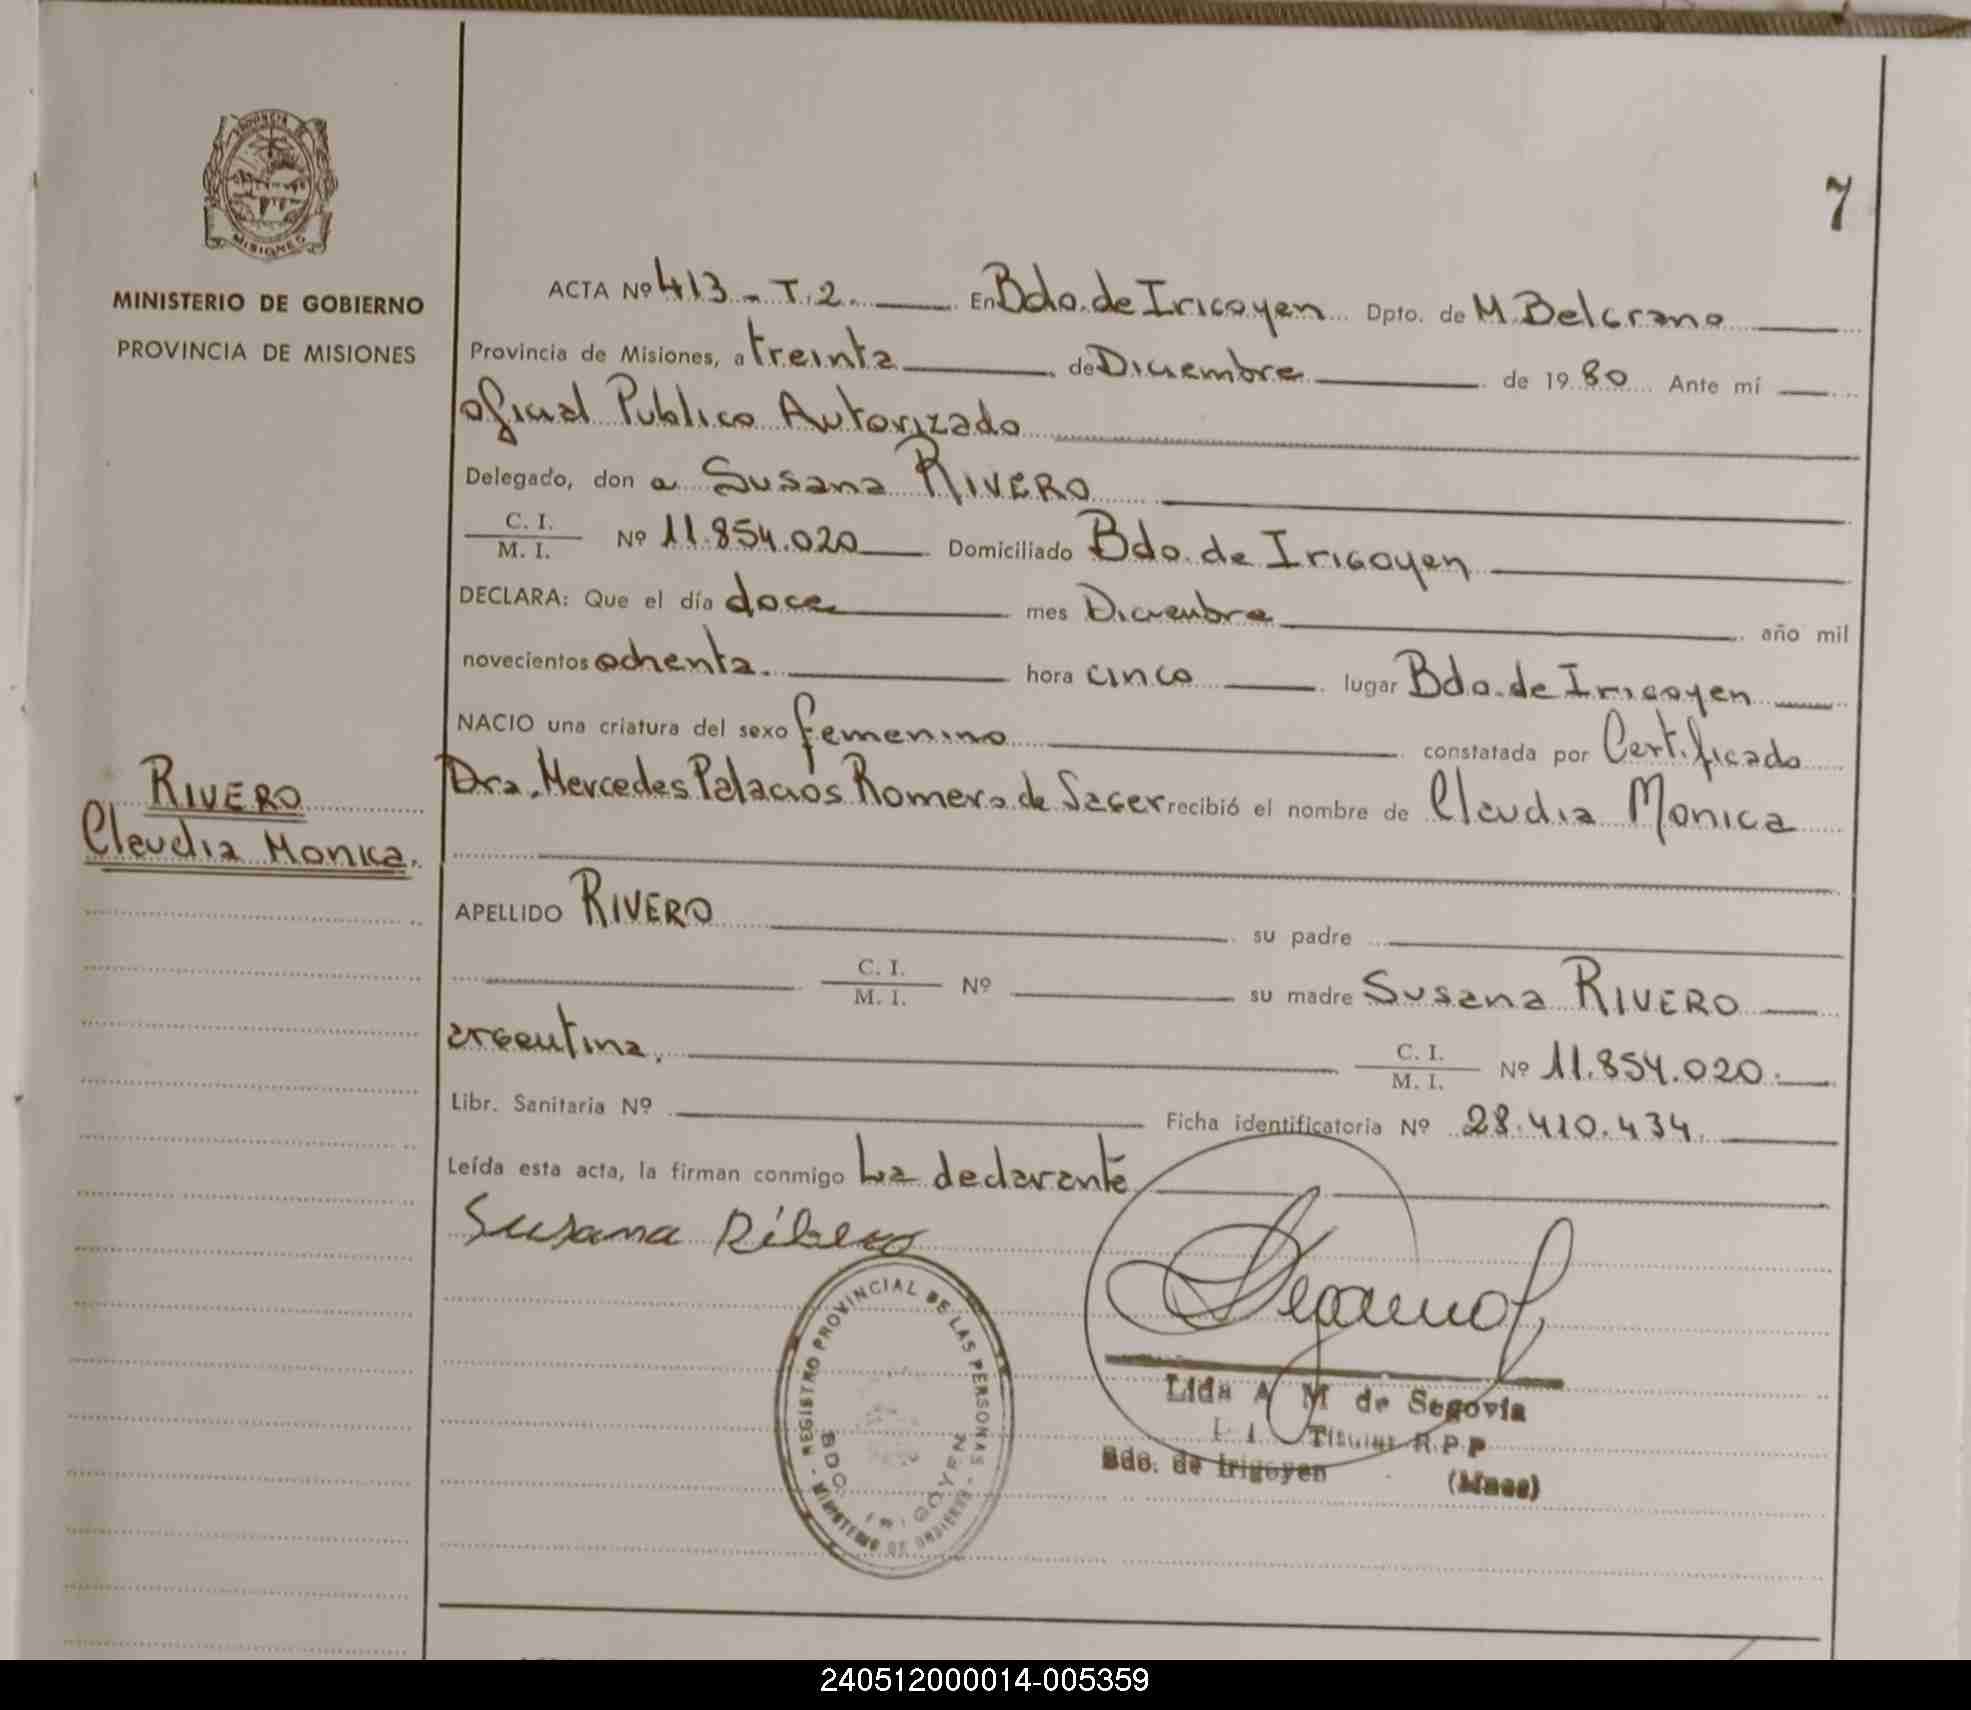 PROVINCIA DE
MISIONES
MINISTERIO DE GOBIERNO
PROVINCIA DE MISIONES
7
ACTA Nº 413 - T. 2. En Bdo. de Irigoyen Dpto. de M. Belgrano
Provincia de Misiones, a treinta de Diciembre de 1980 Ante mí
oficial Publico Autorizado
Delegado, don a Susana RIVERO
C. I.
M. I. Nº 11.854.020 Domiciliado Bdo. de Irigoyen
DECLARA: Que el día doce mes Diciembre año mil
novecientos ochenta. hora cinco lugar Bdo. de Irigoyen
NACIO una criatura del sexo femenino constatada por Certificado
Dra. Mercedes Palacios Romero de Sager recibió el nombre de Claudia Monica
RIVERO
Claudia Monica.
APELLIDO RIVERO su padre
C. I.
M. I. Nº su madre Susana RIVERO
argentina. C. I.
M. I. Nº 11.854.020.
Libr. Sanitaria Nº Ficha identificatoria Nº 28.410.434.
Leída esta acta, la firman conmigo La declarante
Susana Ribero
REGISTRO PROVINCIAL DE LAS PERSONAS - MINISTERIO DE GOBIERNO -
BDO. IRIGOYEN
Lida A M de Segovia
Titular R.P.P
Bdo. de Irigoyen (Mnes)
240512000014-005359